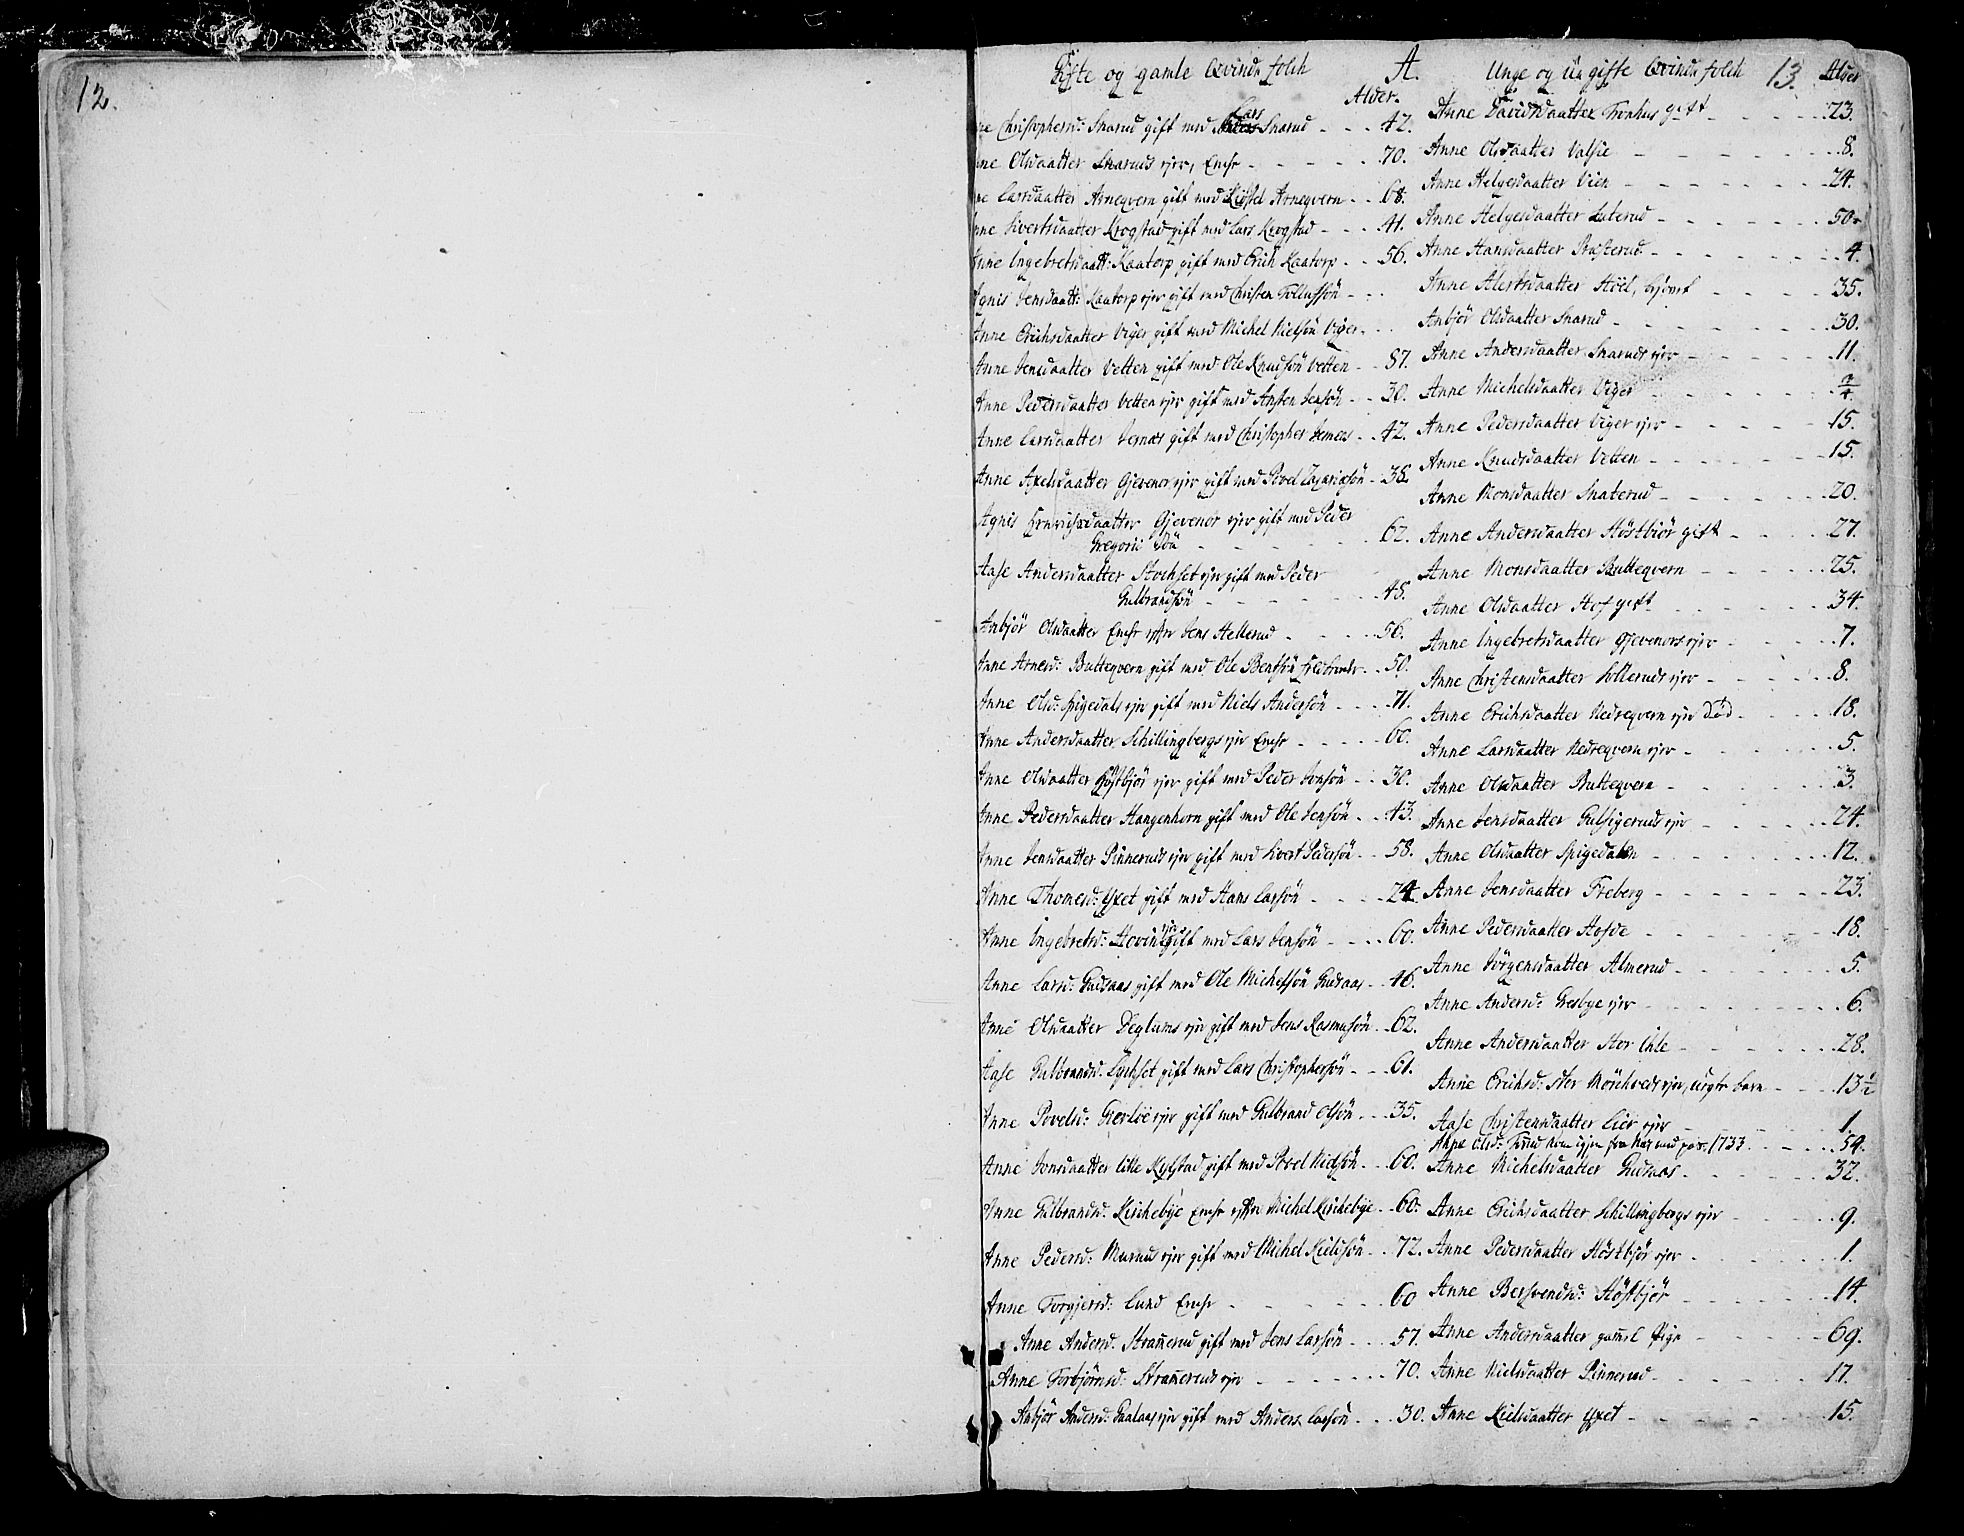 12.
Gifte og gamle Qvinde folck A.
Alder.
Anne Christophersd: Snarud gift med Lars Snarud - - - 42.
Anne Olsdaatter Snaruds ejer, Encke - - - 70.
Anne Larsdaatter Arneqvern gift med Kiestel Arneqvern - - 68.
Anne Sivertsdaatter Krogstad gift med Lars Krogstad - - - 41.
Anne Ingebretsdaatt: Kaatorp gift med Erich Kaatorp - - 56.
Agnis Jensdaatt: Kaatorp ejer gift med Christen Tollufssön - - -
Anne Erichsdaatter Viger gift med Michel Nielsön Viger - - -
Anne Jensdaatter Vetten gift med Ole Knudsön Vetten - - 87.
Anne Pedersdaatter Vetten ejer gift med Ansten Jensön - - 30.
Anne Larsdaatter Semæs gift med Christopher Semæs - - 42.
Anne Axelsdaatter Gjevenor ejer gift med Povel Zachariæsön - 38.
Agnis Henrichsdaatter Gjevenor ejer gift med Peder
Gregorii Sön - - - 62.
Aase Andersdaatter Stochset ejer gift med Peder
Gulbrandsön - - - 48.
Anbjör Olsdaatter Encke efter Jens Hellerud - - - 56.
Anne Arnesd: Butteqvern gift med Ole Bentsön - - 50.
Anne Olsd: Spigedals ejer gift med Niels Andersön - - - 71.
Anne Andersdaatter Schillingbergs ejer Encke - - - 60.
Anne Olsdaatter Höstbjör ejer gift med Peder Jonsön - - 30.
Anne Pedersdaatter Hangenhorn gift med Ole Jensön - - 43.
Anne Jensdaatter Pinneruds ejer gift med Sivert Pedersön - - 58.
Anne Thomesd: Yxet gift med Hans Larsön - - - 24.
Anne Ingebretsd: Hovinds ejer gift med Lars Jensön - - - 60.
Anne Larsd: Gudsaas gift med Ole Michelsön Gudsaas - - 46.
Anne Olsdaatter Deglums ejer gift med Jens Rasmusön - - 62.
Aase Gulbrandsd: Lychset gift med Lars Christophersön - - - 61.
Anne Povelsd: Gierlöe ejer gift med Gulbrand Olsön - - - 35.
Anne Jonsdaatter litle Kylstad gift med Povel Nielsön - - 60.
Anne Gulbrandsd: Kirchebye Encke efter Michel Kirchebye - - 60.
Anne Pedersd: Muruds ejer gift med Michel Nielsön - - 72.
Anne Torgjersd: Lund Encke - - - 60
Anne Andersd: Stramerud gift med Jens Larsön - - - 57.
Anne Torbjörnsd: Strameruds ejer - - - 70.
Anbjör Andersd: Gaalaas ejer gift med Anders Larsön - - - 30.
Unge og Ungifte Qvinde folck 13. Alder
Anne Davidsdaatter Tronhus gift - - - 23.
Anne Olsdaatter Valsie - - - 8.
Anne Helgesdaatter Vien - - - 24.
Anne Helgesdaatter Luterud - - - 50.
Anne Hansdaatter Præsterud - - - 4
Anne Alertsdaatter Höel, - - - 35.
Anbjör Olsdaatter Snarud - - - 30.
Anne Andersdaatter Snaruds ejer - - - 11.
Anne Michelsdaatter Viger - - - 3/4
Anne Pedersdaatter Viger ejer - - - 15.
Anne Knudsdaatter Vetten - - - 15.
Anne Monsdaatter Snaterud - - - 20.
Anne Andersdaatter Höstbiör gift - - - 27.
Anne Monsdaatter Butteqvern - - - 25.
Anne Olsdaatter Hof gift - - - 34.
Anne Ingebretsdaatter Gjevenors ejer - - - 7.
Anne Christensdaatter Solleruds ejer - - - 8.
Anne Erichsdaatter Nedreqvern ejer död - - - 18.
Anne Larsdaatter Nedreqvern ejer - - - 5.
Anne Olsdaatter Butteqvern - - - 3.
Anne Jensdaatter Gulsigeruds ejer - - - 24.
Anne Olsdaatter Spigedalen - - - 12.
Anne Jensdaatter Freberg - - - 23.
Anne Pedersdaatter Hofde - - - 18.
Anne Jörgensdaatter Almerud - - - 5.
Anne Andersd: Gresbye ejer - - - 6.
Anne Andersdaatter Stor Ihle - - - 28.
Anne Erichsd: Stor Mönchveds ejer, uegte barn - - - 13 1/2
Aase Christensdaatter Lier ejer - - - 1.
Anne Olsd: Tuud kom igjen fra Næs med pas. 1733 - - - 54.
Anne Michelsdaatter Gudsaas - - - 32.
Anne Erichsdaatter Schillingbergs ejer - - - 9.
Anne Pedersdaatter Höstbjör ejer - - - 1.
Anne Bersvendsd: Höstbjör - - - 14.
Anne Andersdaatter gamel Pige - - - 69.
Anne Nielsdaatter Pinnerud - - - 17.
Anne Nielsdaatter Yxet - - - 15.